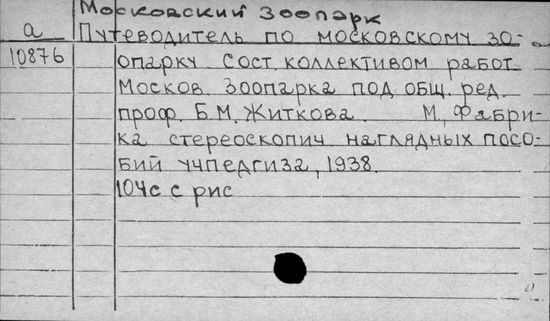 Московский Зоопарк
а Путеводитель по московскому зо-
10876 опарку Сост. коллективом работ.
Москов. Зоопарка под общ. ред.
проф. Б.М. Житкова. М, Фабри-
ка стереоскопич наглядных посо-
бий учпедгиза, 1938.
104с с рис